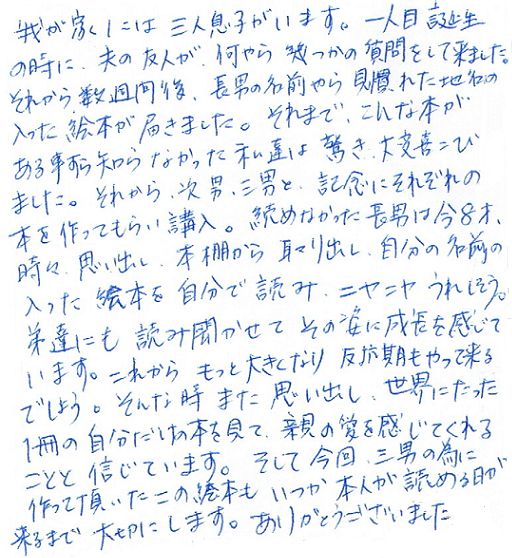 我が家くには三人息子がいます。一人目誕生
の時に、夫の友人が、何やら幾つかの質問をして来ました。
それから数週間後、長男の名前やら見慣れた地名の
入った絵本が届きました。それまで、こんな本が
ある事すら知らなかった私達は驚き、大変喜こび
ました。それから、次男、三男と、記念にそれぞれの
本を作ってもらい購入。読めなかった長男は今8才、
時々、思い出し、本棚から取り出し、自分の名前の
入った絵本を自分で読み、ニヤニヤうれしそう。
弟達にも読み聞かせてその姿に成長を感じて
います。これからもっと大きくなり反抗期もやって来る
でしょう。そんな時また思い出し、世界にたった
1冊の自分だけの本を見て、親の愛を感じてくれる
ことと信じています。そして今回、三男の為に
作って頂いたこの絵本もいつか本人が読める日が
来るまで大切にします。ありがとうございました